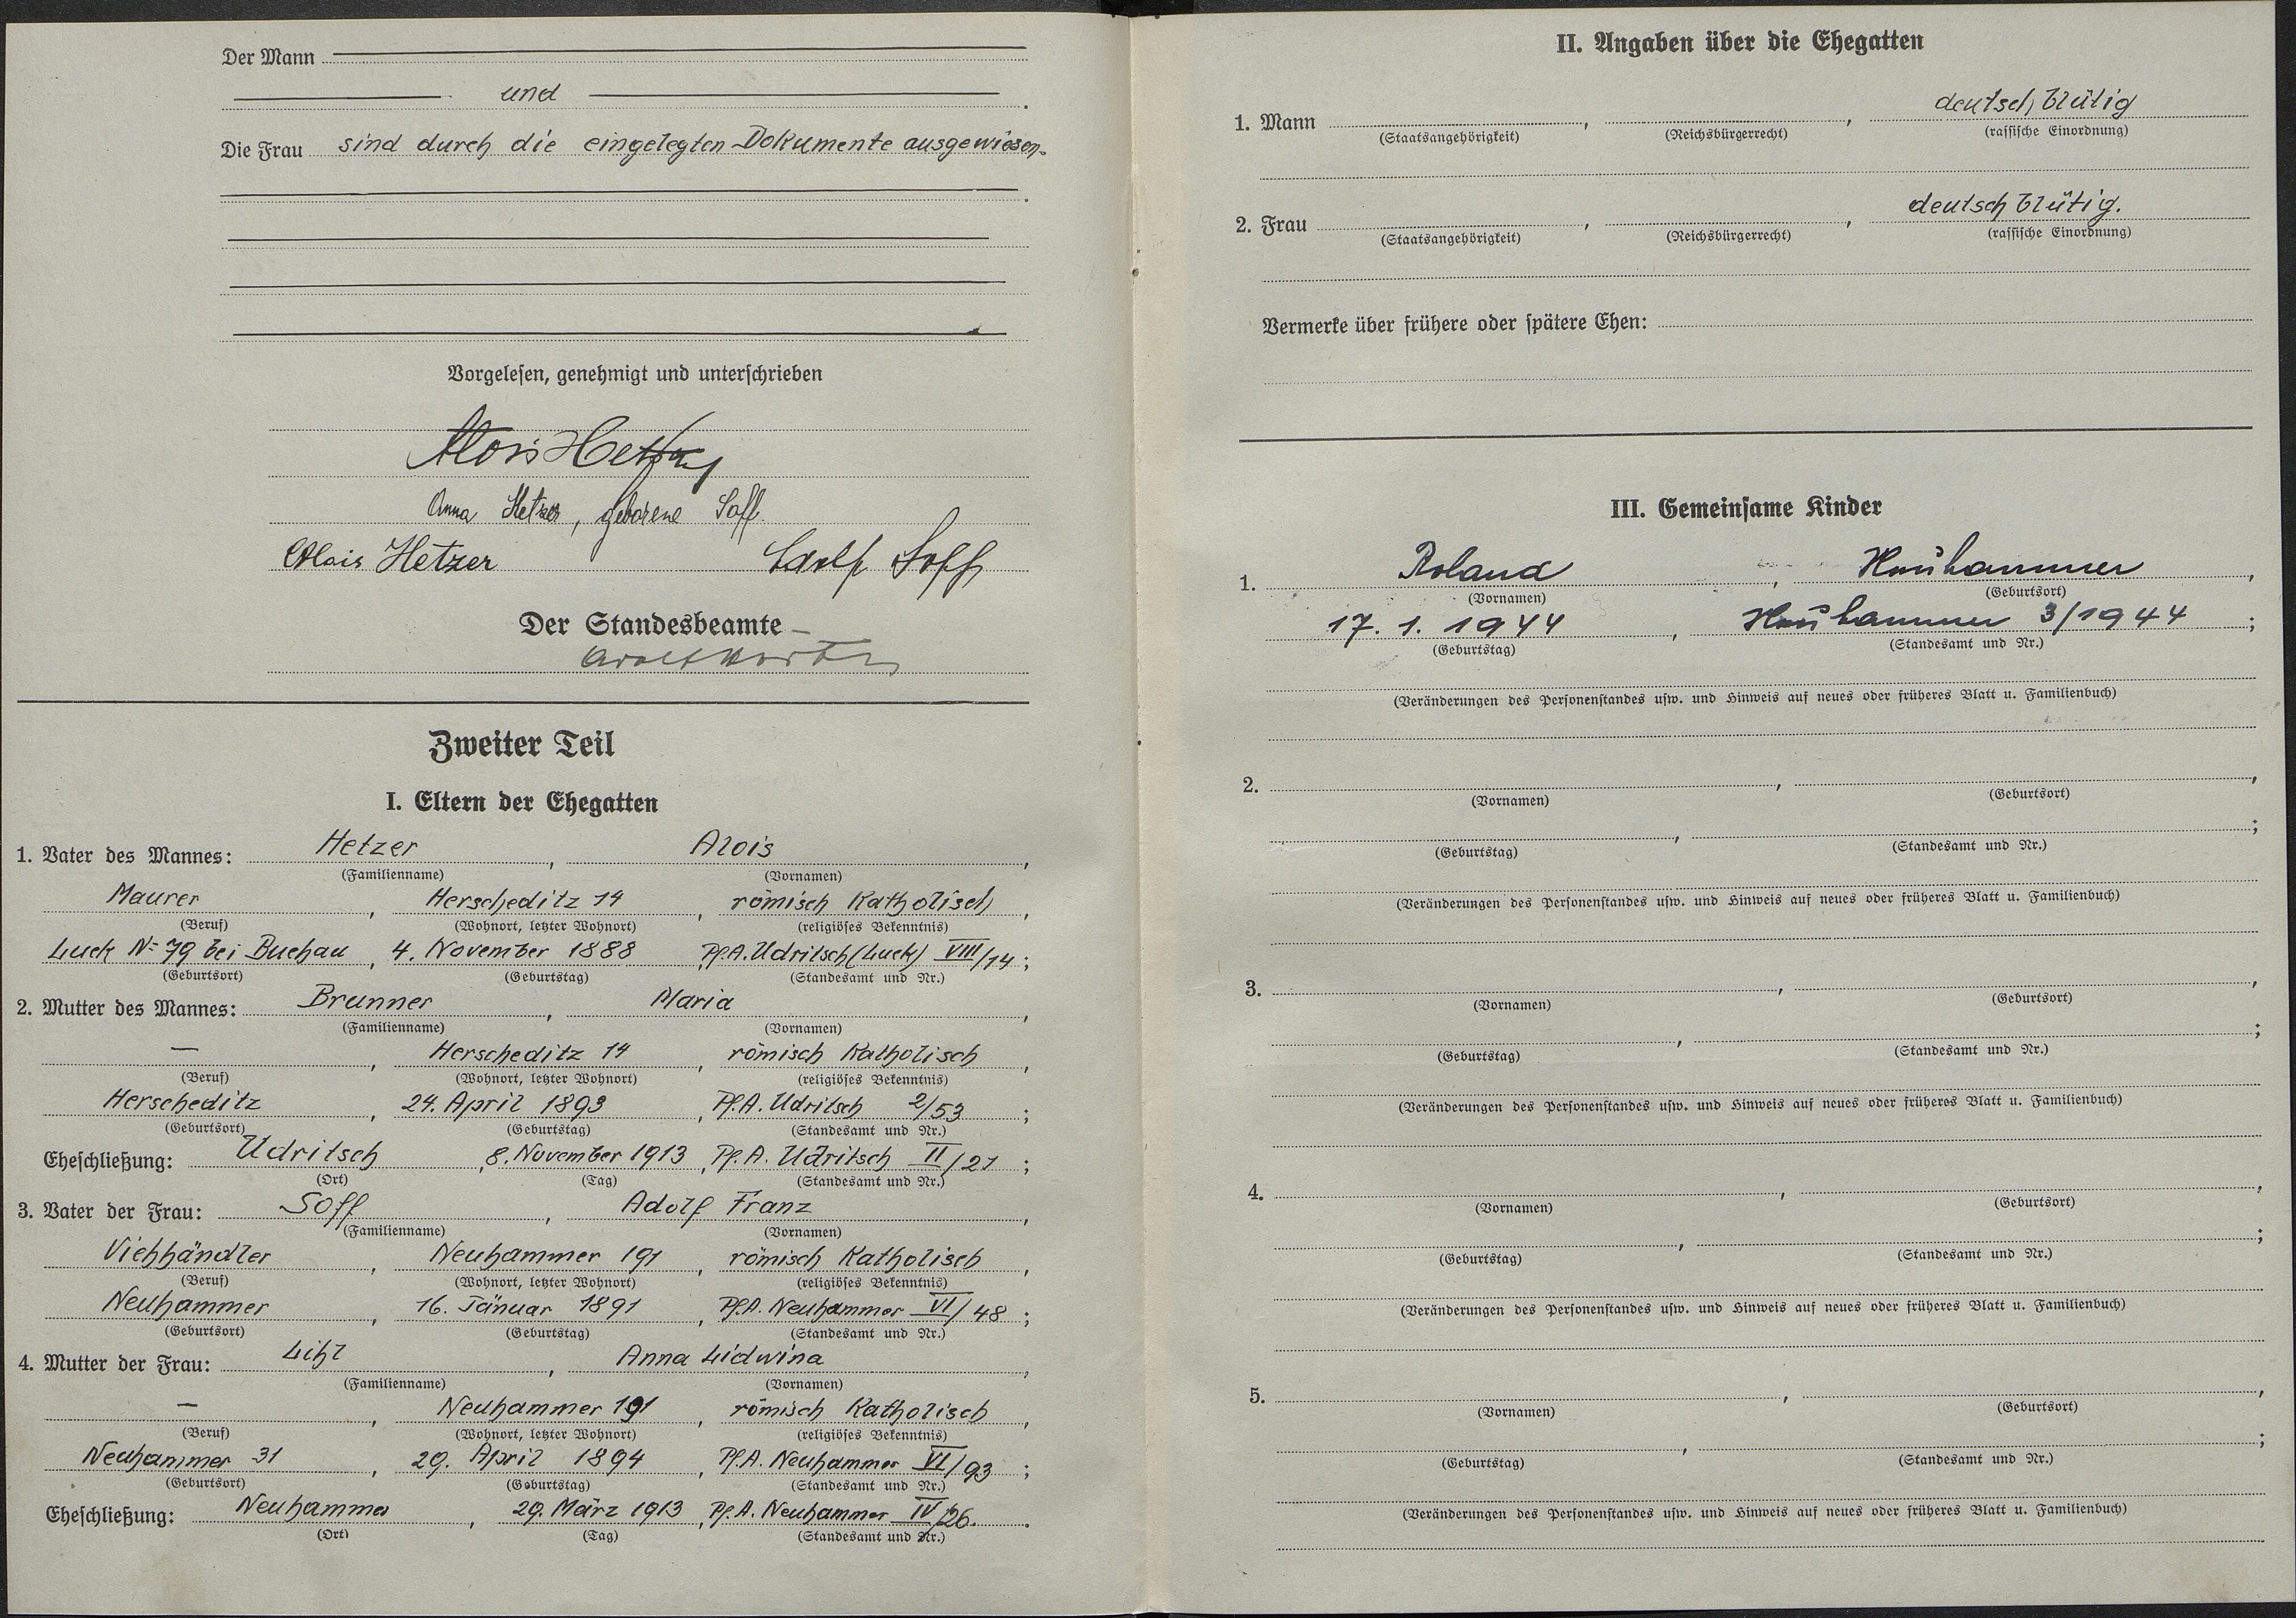 Der Mann
und
Die Frau sind durch die eingelegten Dokumente ausgewiesen.
Vorgelesen, genehmigt und unterschrieben
Alois Hetzer
Anna Hetzer, geborene Soff.
Alois Hetzer Adolf Soff
Der Standesbeamte
Zweiter Teil
I. Eltern der Ehegatten
1. Vater des Mannes: Hetzer, Alois,
(Familienname) (Vornamen)
Maurer, Herscheditz 14, römisch katholisch,
(Beruf) (Wohnort, letzter Wohnort) (religiöses Bekenntnis)
Luck N= 79 bei Buchau, 4. November 1888, Pf.A. Udritsch (Luck) VIII/14;
(Geburtsort) (Geburtstag) (Standesamt und Nr.)
2. Mutter des Mannes: Brunner, Maria,
(Familienname) (Vornamen)
—, Herscheditz 14, römisch katholisch,
(Beruf) (Wohnort, letzter Wohnort) (religiöses Bekenntnis)
Herscheditz, 24. April 1893, Pf.A. Udritsch 2/53;
(Geburtsort) (Geburtstag) (Standesamt und Nr.)
Eheschließung: Udritsch, 8. November 1913, Pf.A. Udritsch II/21;
(Ort) (Tag) (Standesamt und Nr.)
3. Vater der Frau: Soff, Adolf Franz,
(Familienname) (Vornamen)
Viehhändler, Neuhammer 191, römisch katholisch,
(Beruf) (Wohnort, letzter Wohnort) (religiöses Bekenntnis)
Neuhammer, 16. Jänuar 1891, Pf.A. Neuhammer VI/48;
(Geburtsort) (Geburtstag) (Standesamt und Nr.)
4. Mutter der Frau: Lihl, Anna Lidwina,
(Familienname) (Vornamen)
—, Neuhammer 191, römisch katholisch,
(Beruf) (Wohnort, letzter Wohnort) (religiöses Bekenntnis)
Neuhammer 31, 29. April 1894, Pf.A. Neuhammer VI/93;
(Geburtsort) (Geburtstag) (Standesamt und Nr.)
Eheschließung: Neuhammer, 29. März 1913, Pf.A. Neuhammer IV/26.
(Ort) (Tag) (Standesamt und Nr.)
II. Angaben über die Ehegatten
1. Mann , , deutschblütig
(Staatsangehörigkeit) (Reichsbürgerrecht) (rassische Einordnung)
2. Frau , , deutschblütig.
(Staatsangehörigkeit) (Reichsbürgerrecht) (rassische Einordnung)
Vermerke über frühere oder spätere Ehen:
III. Gemeinsame Kinder
1. Roland, Neuhammer,
(Vornamen) (Geburtsort)
17. 1. 1944, Neuhammer 3/1944;
(Geburtstag) (Standesamt und Nr.)
(Veränderungen des Personenstandes usw. und Hinweis auf neues oder früheres Blatt u. Familienbuch)
2. , ,
(Vornamen) (Geburtsort)
, ;
(Geburtstag) (Standesamt und Nr.)
(Veränderungen des Personenstandes usw. und Hinweis auf neues oder früheres Blatt u. Familienbuch)
3. , ,
(Vornamen) (Geburtsort)
, ;
(Geburtstag) (Standesamt und Nr.)
(Veränderungen des Personenstandes usw. und Hinweis auf neues oder früheres Blatt u. Familienbuch)
4. , ,
(Vornamen) (Geburtsort)
, ;
(Geburtstag) (Standesamt und Nr.)
(Veränderungen des Personenstandes usw. und Hinweis auf neues oder früheres Blatt u. Familienbuch)
5. , ,
(Vornamen) (Geburtsort)
, ;
(Geburtstag) (Standesamt und Nr.)
(Veränderungen des Personenstandes usw. und Hinweis auf neues oder früheres Blatt u. Familienbuch)